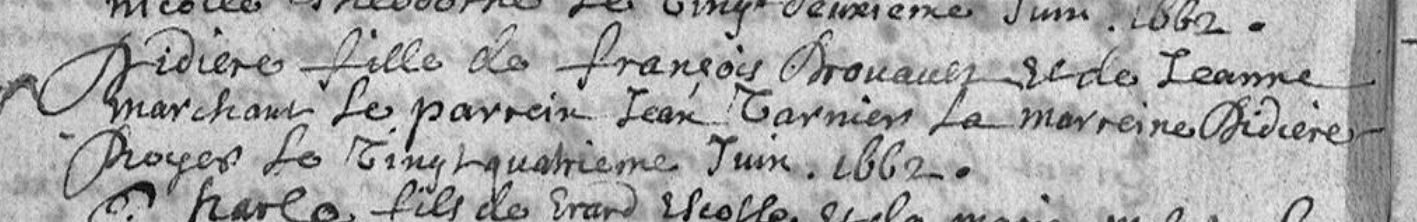 Nicolle Thebdorne Le Vingt deuxieme Juin. 1662.
Didiere fille de françois Drouault Et de Jeanne
marchant Le parrein Jean Tarnier La marreine Didiere
Royer Le Vingt quatrieme Juin. 1662.
Charle fils de Erard